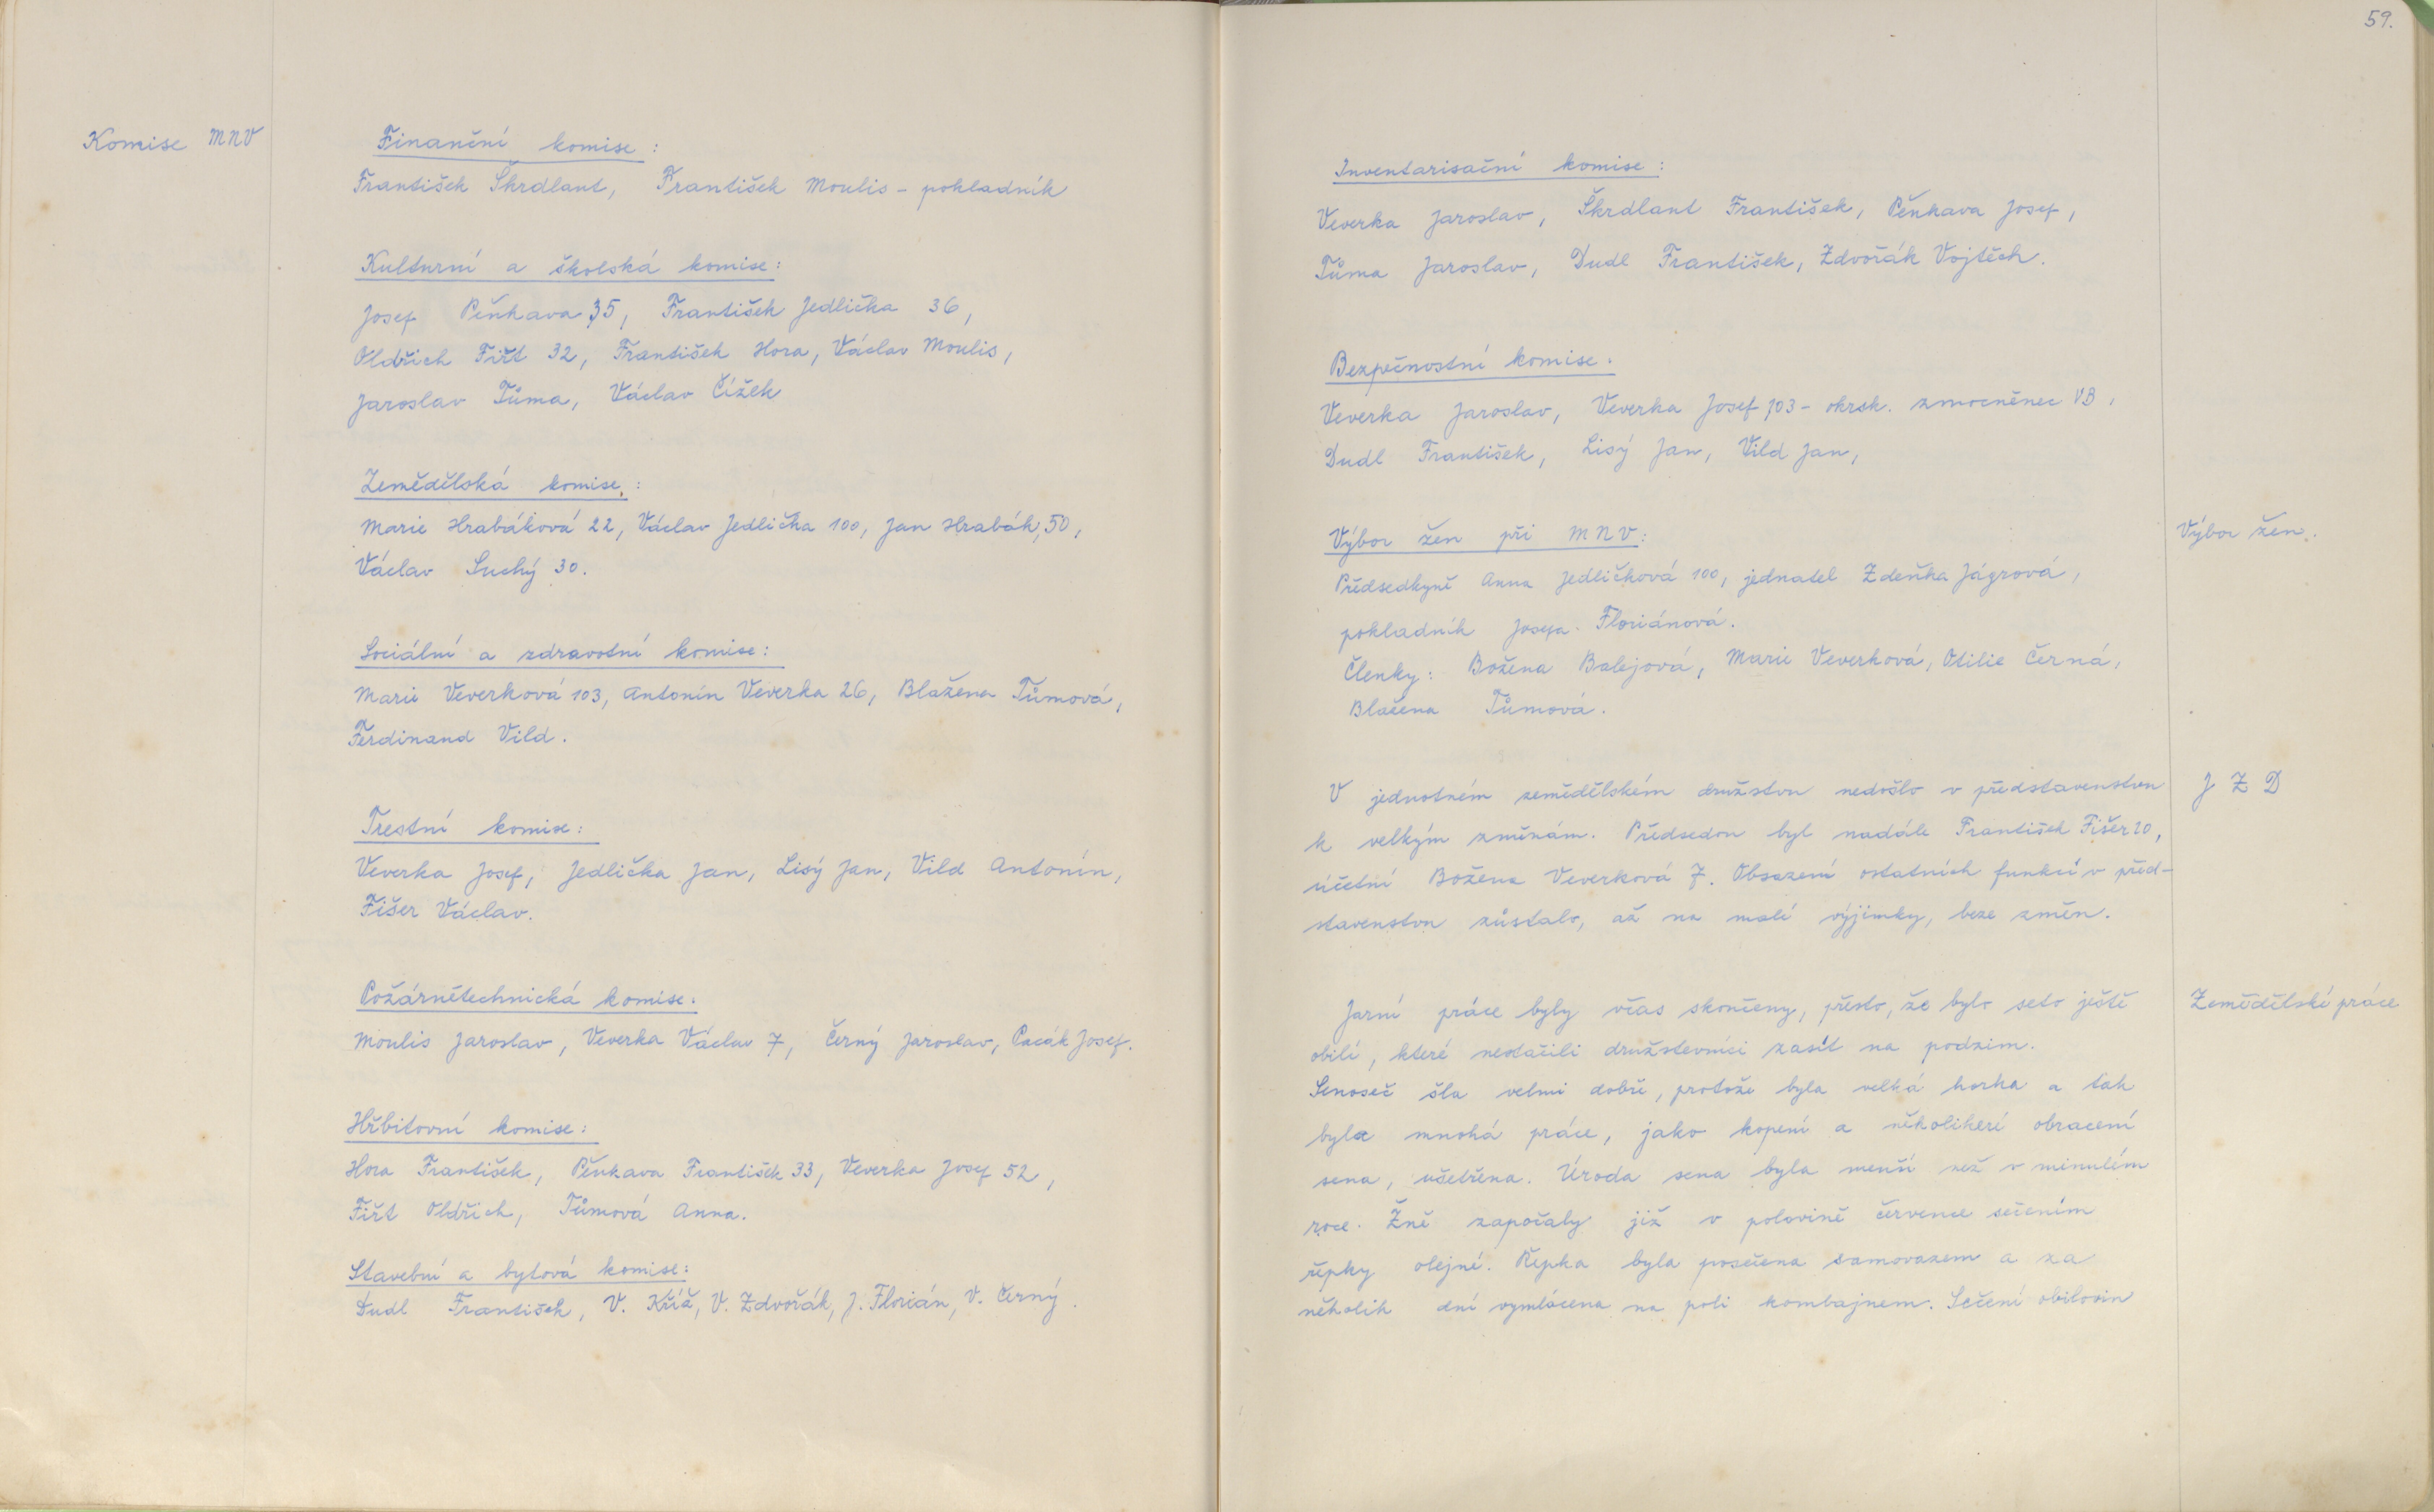 Komise MNV
Finanční komise:
František Škrdlant, František Moulis - pokladník
Kulturní a školská komise:
Josef Pěnkava 35, František Jedlička 36,
Oldřich Fišt 32, František Hora, Václav Moulis,
Jaroslav Tůma, Václav Čížek
Zemědělská komise:
Marie Hrabáková 22, Václav Jedlička 100, Jan Hrabák, 50,
Václav Suchý 30.
Sociální a zdravotní komise:
Marie Veverková 103, Antonín Veverka 26, Blažena Tůmová,
Ferdinand Vild.
Trestní komise:
Veverka Josef, Jedlička Jan, Lisý Jan, Vild Antonín,
Fišer Václav.
Požárnětechnická komise:
Moulis Jaroslav, Veverka Václav 7, Černý Jaroslav, Pacák Josef.
Hřbitovní komise:
Hora František, Pěnkava František 33, Veverka Josef 52,
Fišt Oldřich, Tůmová Anna.
Stavební a bytová komise:
Dudl František, V. Kříž, V. Zdvořák, J. Florián, V. Černý.
59.
Inventarisační komise:
Veverka Jaroslav, Škrdlant František, Pěnkava Josef,
Tůma Jaroslav, Dudl František, Zdvořák Vojtěch.
Bezpečnostní komise.
Veverka Jaroslav, Veverka Josef 103 - okrsk. zmocněnec VB,
Dudl František, Lisý Jan, Vild Jan,
Výbor žen při MNV:
Výbor žen.
Předsedkyně Anna Jedličková 100, jednatel Zdeňka Jágrová,
pokladník Josefa Floriánová.
Členky: Božena Balejová, Marie Veverková, Otilie Černá,
Blažena Tůmová.
JZD
V jednotném zemědělském družstvu nedošlo v představenstvu
k velkým změnám. Předsedou byl nadále František Fišer 20,
účetní Božena Veverková 7. Obsazení ostatních funkcí v před-
stavenstvu zůstalo, až na malé výjimky, beze změn.
Zemědělské práce
Jarní práce byly včas skončeny, přesto, že bylo seto ještě
obilí, které nestačili družstevníci zasít na podzim.
Senoseč šla velmi dobře, protože byla velká horka a tak
byla mnohá práce, jako kopení a několikeré obracení
sena, ušetřena. Úroda sena byla menší než v minulém
roce. Žně započaly již v polovině července sečením
řepky olejné. Řepka byla posečena samovazem a za
několik dní vymlácena na poli kombajnem. Sečení obilovin